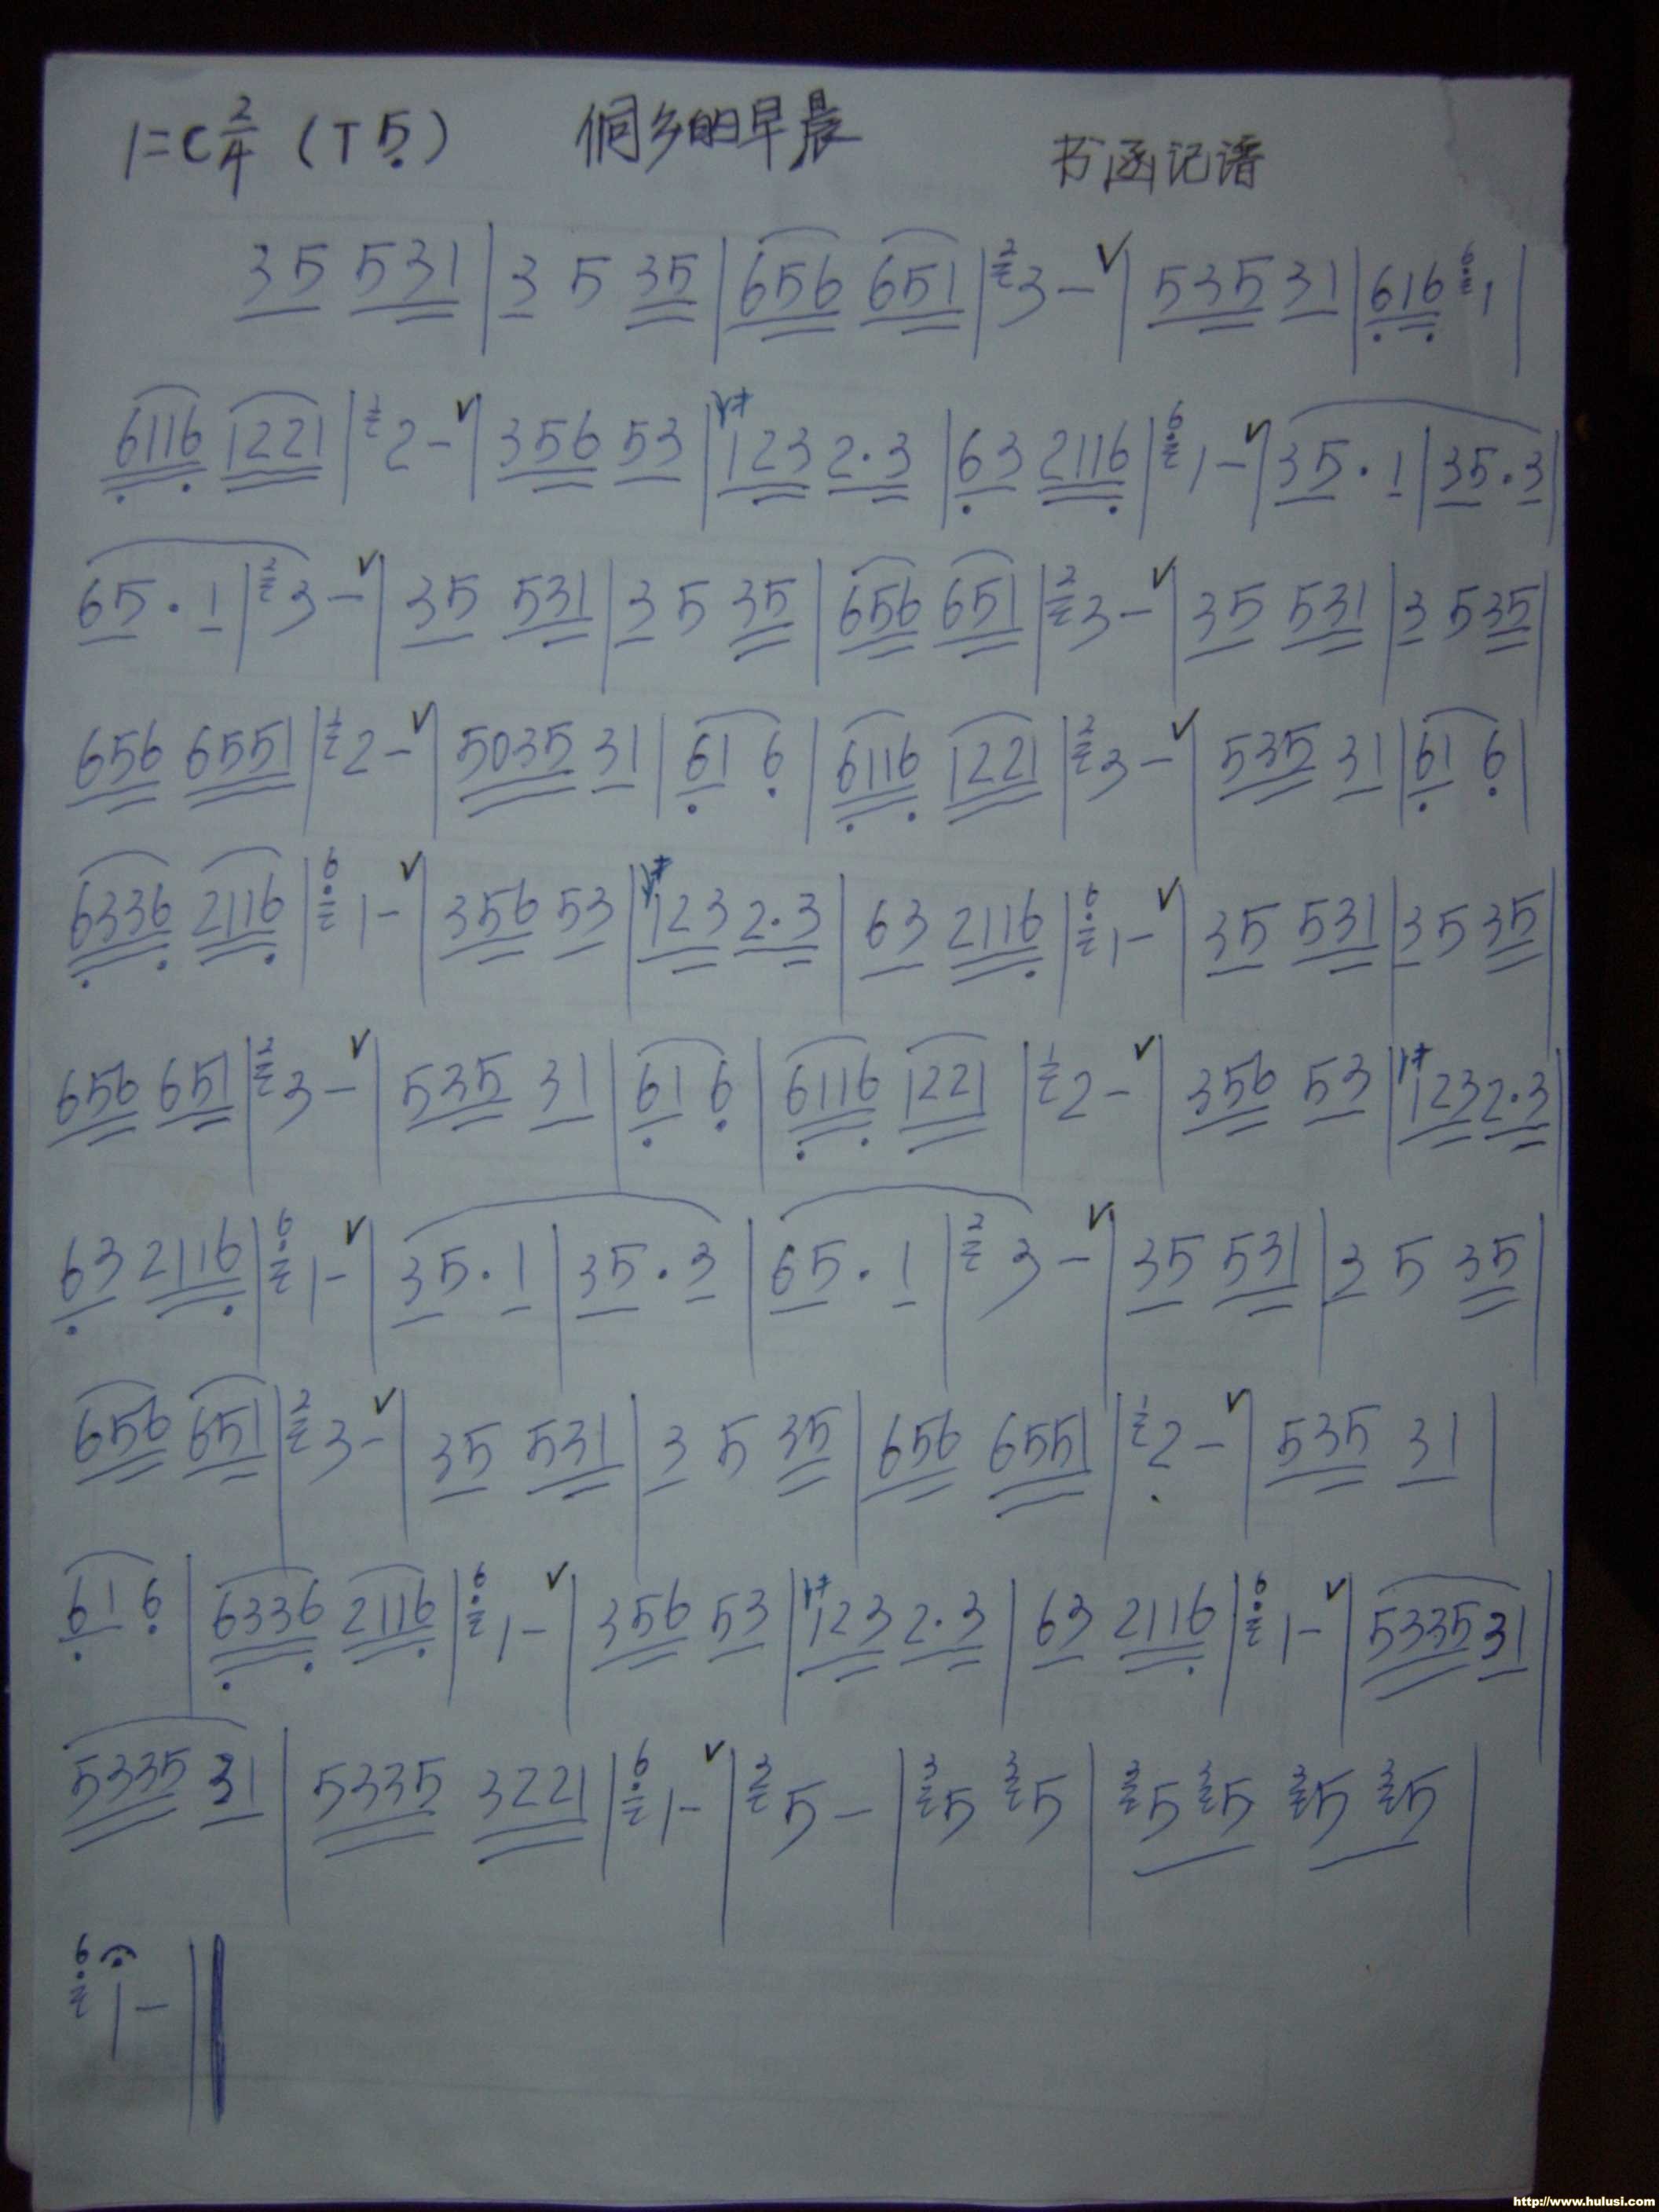 1=C 2/4 (T 5̣) 侗乡的早晨 书函记谱
35 531 | 3 5 35 | 656 651 | 2 3 – ∨ | 535 31 | 616 6 1 |
6116 1221 | 1 2 – ∨ | 356 53 | 123 2·3 | 63 2116 | 6 1 – ∨ | 35·1 | 35·3 |
65·1 | 2 3 – ∨ | 35 531 | 3 5 35 | 656 651 | 2 3 – ∨ | 35 531 | 3 5 35 |
656 6551 | 1 2 – ∨ | 5035 31 | 61 6 | 6116 1221 | 2 3 – ∨ | 535 31 | 61 6 |
6336 2116 | 6 1 – ∨ | 356 53 | 123 2·3 | 63 2116 | 6 1 – ∨ | 35 531 | 3 5 35 |
656 651 | 2 3 – ∨ | 535 31 | 61 6 | 6116 1221 | 1 2 – ∨ | 356 53 | 123 2·3 |
63 2116 | 6 1 – ∨ | 35·1 | 35·3 | 65·1 | 2 3 – ∨ | 35 531 | 3 5 35 |
656 651 | 2 3 – ∨ | 35 531 | 3 5 35 | 656 6551 | 1 2 – ∨ | 535 31 |
61 6 | 6336 2116 | 6 1 – ∨ | 356 53 | 123 2·3 | 63 2116 | 6 1 – ∨ | 5335 31 |
5335 31 | 5335 3221 | 6 1 – ∨ | 3 5 – | 3 5 3 5 | 3 5 3 5 3 5 3 5 |
6 1 – ‖
http://www.hulusi.com